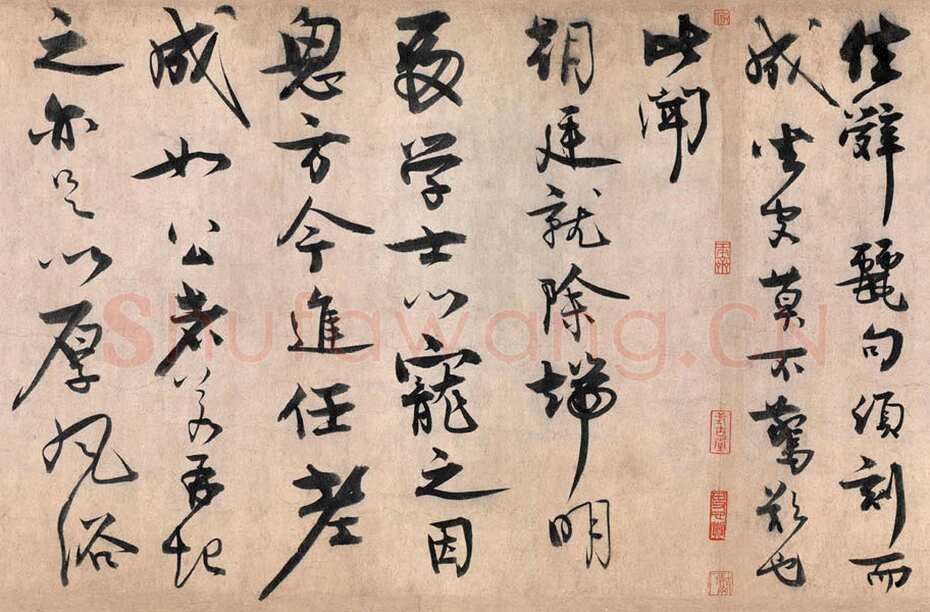 佳辭麗句頃刻而
成坐客莫不驚歎也
此聞
朝廷就除端明
殿学士以寵之因
思方今進任老
成如公者若再起
之亦足以厚風俗
Shufawang.CN